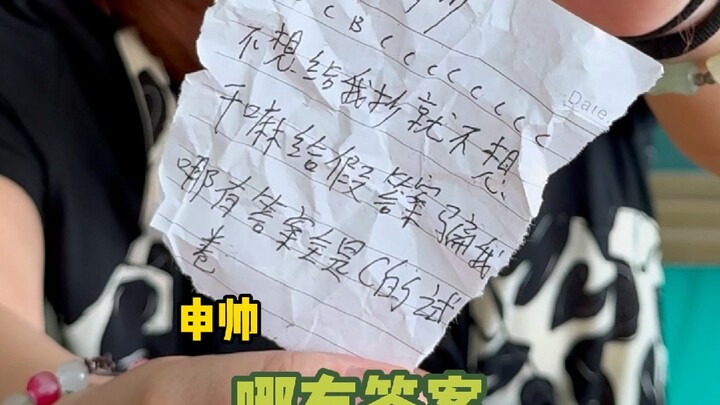 C B C C C C C C C C
不想给我抄就不想
干嘛给假答案骗我
哪有答案全是C的试
卷
Date
申帅
哪有答案